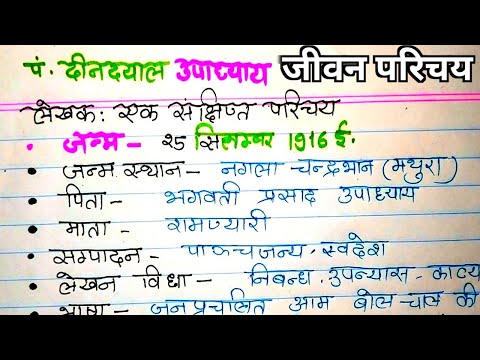 पं. दीनदयाल उपाध्याय जीवन परिचय
लेखक: एक संक्षिप्त परिचय
• जन्म - २५ सितम्बर 1916 ई.
• जन्म स्थान - नगला चन्द्रभान (मथुरा)
• पिता - भगवती प्रसाद उपाध्याय
• माता - रामप्यारी
• सम्पादन - पाञ्चजन्य, स्वदेश
• लेखन विधा - निबन्ध, उपन्यास - काव्य
• भाषा - जन प्रचलित आम बोल-चाल की